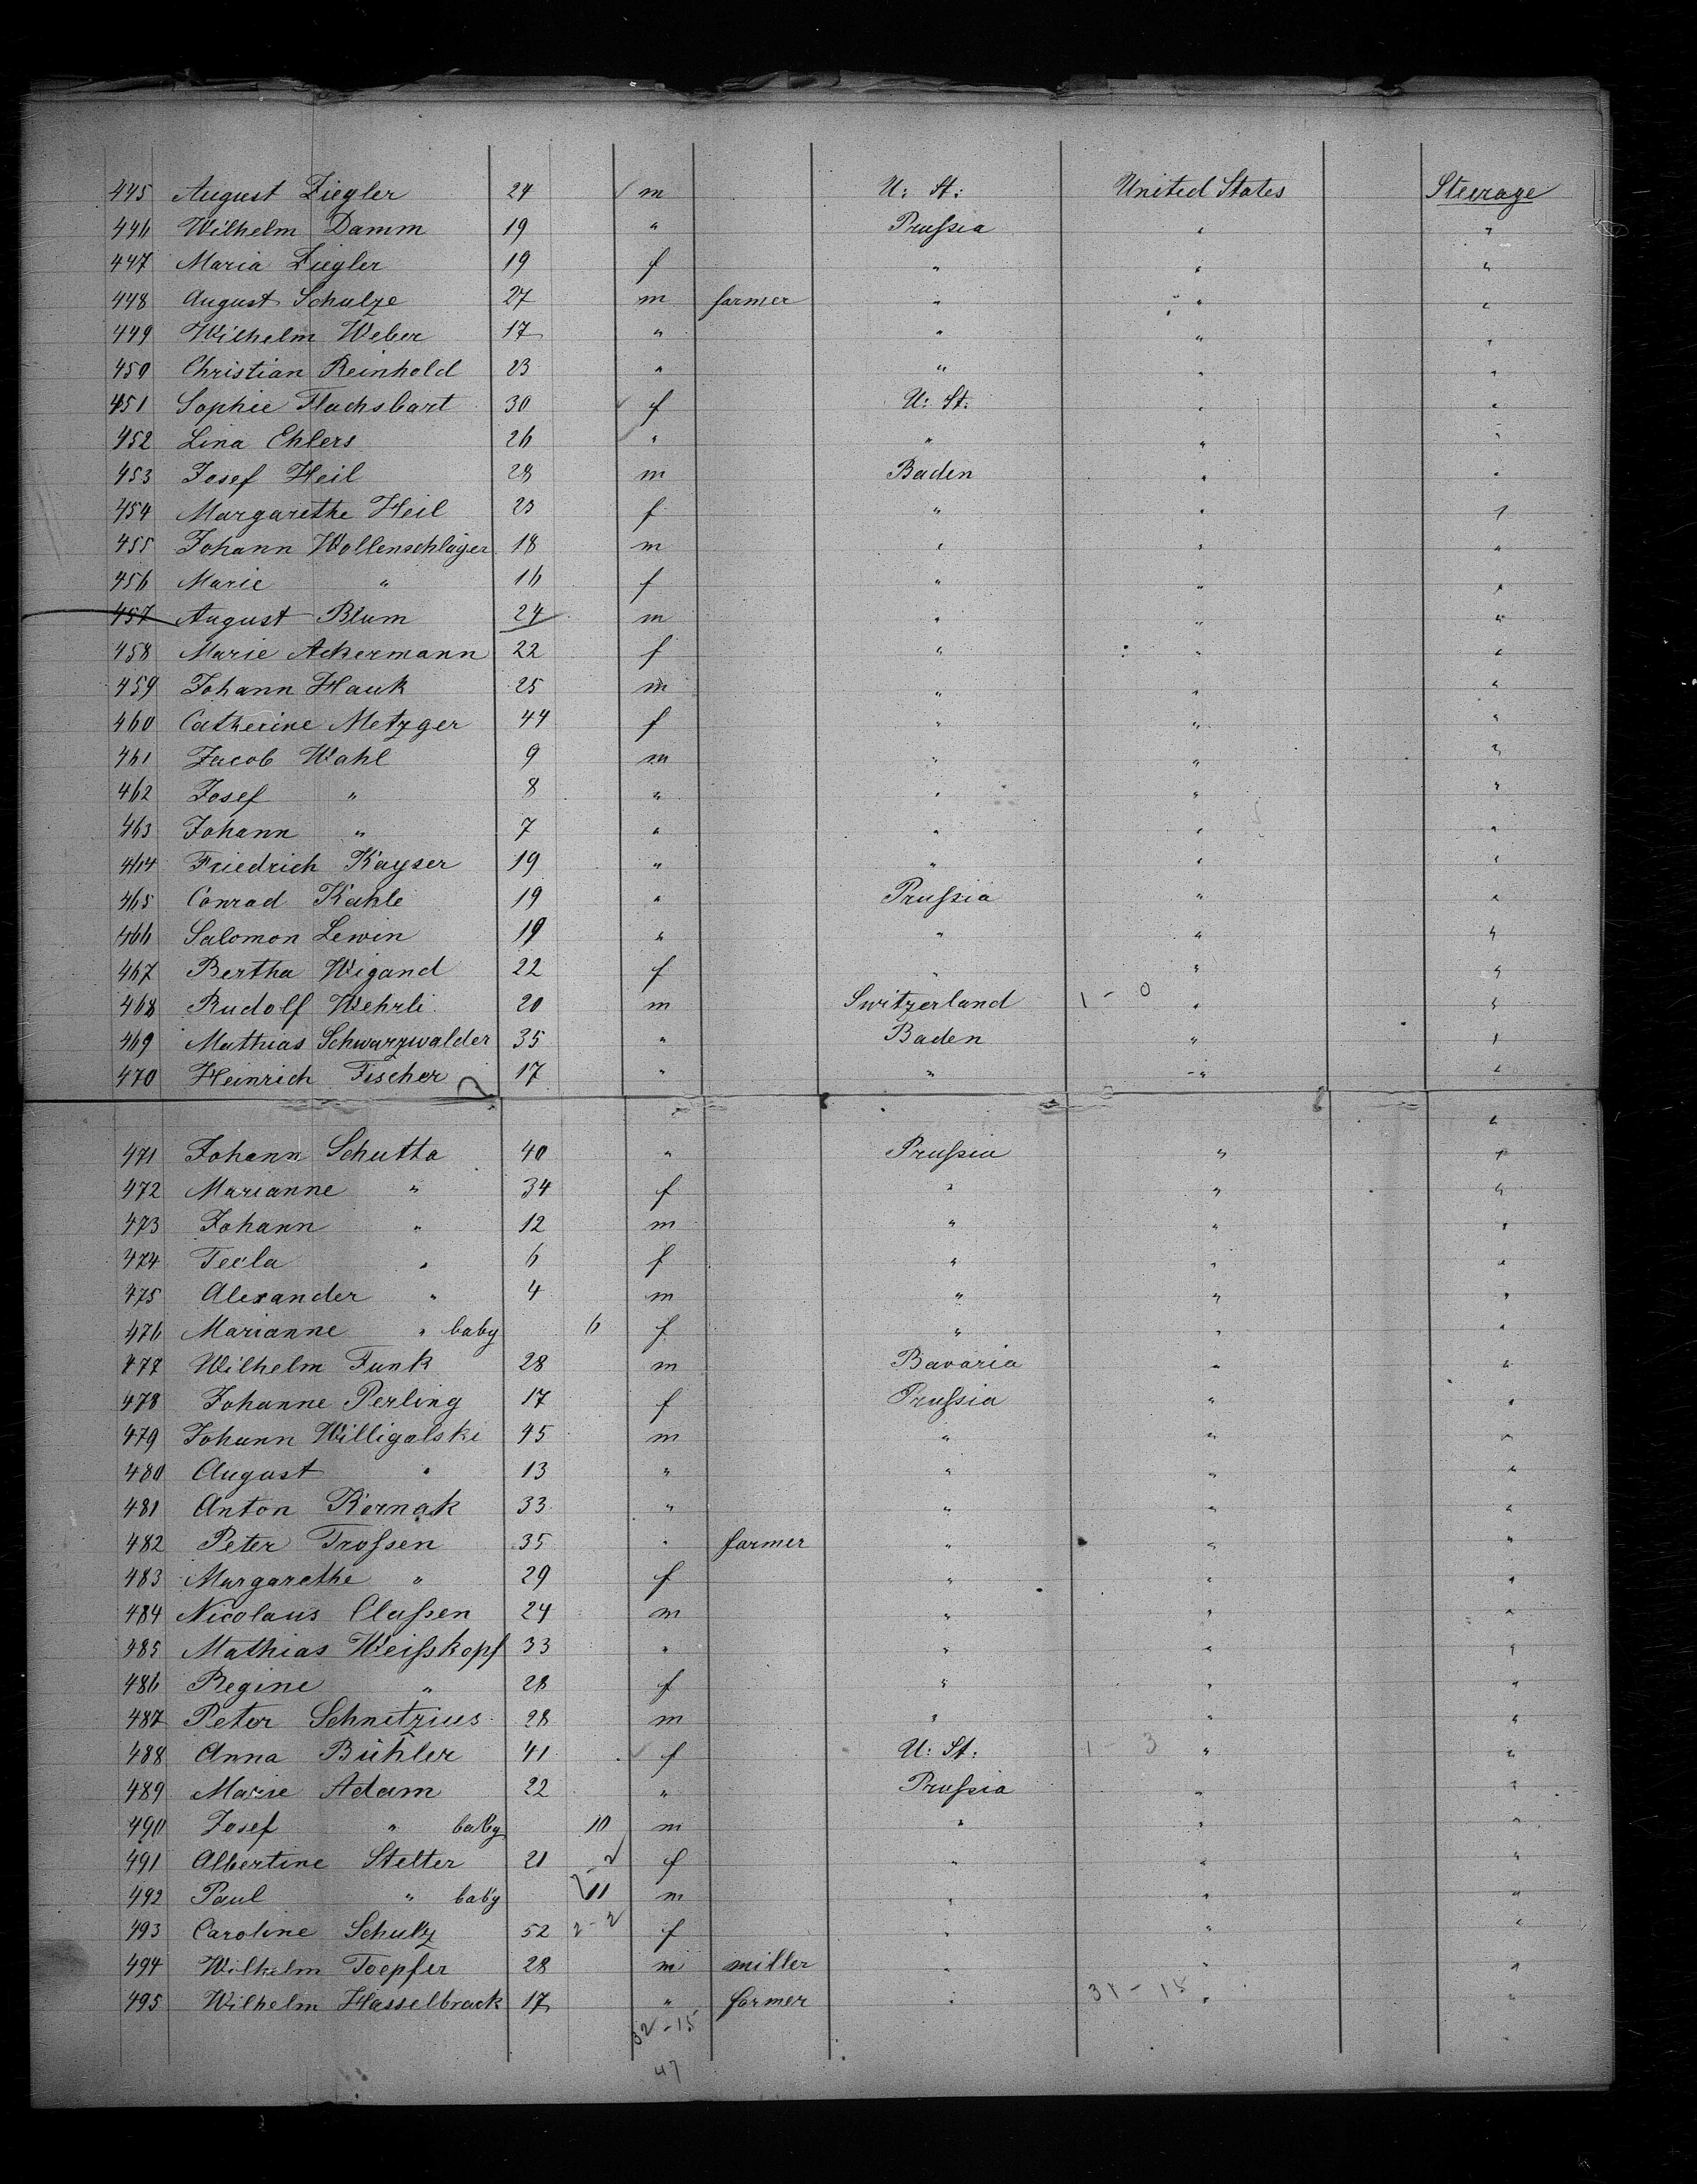 445 August Ziegler 24 ✓ m U: St: United States Steerage
446 Wilhelm Damm 19 " Prussia " "
447 Maria Ziegler 19 f " " "
448 August Schulze 27 m farmer " " "
449 Wilhelm Weber 17 " " " "
450 Christian Reinhold 23 " " " "
451 Sophie Flachsbart 30 ✓ f U: St: " "
452 Lina Ehlers 26 ✓ " " " "
453 Josef Heil 28 m Baden " "
454 Margarethe Heil 23 f " " "
455 Johann Wollenschläger 18 m " " "
456 Marie " 16 f " " "
457 August Blum 24 m " " "
458 Marie Ackermann 22 f " " "
459 Johann Hauk 25 m " " "
460 Catherine Metzger 44 f " " "
461 Jacob Wahl 9 m " " "
462 Josef " 8 " " " "
463 Johann " 7 " " " "
464 Friedrich Kayser 19 " " " "
465 Conrad Kahle 19 " Prussia " "
466 Salomon Lewin 19 " " " "
467 Bertha Wigand 22 f " " "
468 Rudolf Wehrli 20 m Switzerland 1 - 0 " "
469 Mathias Schwarzwalder 35 " Baden " "
470 Heinrich Fischer 17 " " " "
"
471 Johann Schutta 40 " Prussia " "
472 Marianne " 34 f " " "
473 Johann " 12 m " " "
474 Tecla " 6 f " " "
475 Alexander " 4 m " " "
476 Marianne " baby 6 f " " "
477 Wilhelm Funk 28 m Bavaria " "
478 Johanne Perling 17 f Prussia " "
479 Johann Willigalski 45 m " " "
480 August " 13 " " " "
481 Anton Kornak 33 " " " "
482 Peter Trossen 35 " farmer " " "
483 Margarethe " 29 f " " "
484 Nicolaus Classen 24 m " " "
485 Mathias Weisskopf 33 " " " "
486 Regine " 28 f " " "
487 Peter Schnetzius 28 m " " "
488 Anna Bühler 41 ✓ f U: St: 1 - 3 " "
489 Marie Adam 22 " Prussia " "
490 Josef " baby 10 m " " "
491 Albertine Stelter 21 f " " "
492 Paul " baby 11 m " " "
493 Caroline Schulz 52 2-2 f " " "
494 Wilhelm Toepfer 28 m miller " " "
495 Wilhelm Hasselbrack 17 " farmer " 31 - 15 " "
32 - 15
47